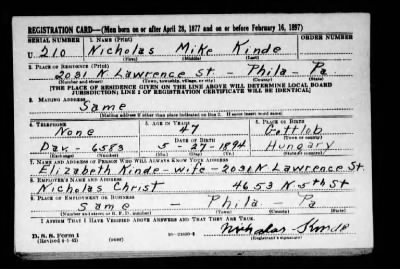 REGISTRATION CARD—(Men born on or after April 28, 1877 and on or before February 16, 1897)
SERIAL NUMBER 1. NAME (Print) ORDER NUMBER
U 210 Nicholas Mike Kinde
(First) (Middle) (Last)
2. PLACE OF RESIDENCE (Print)
2031 N Lawrence St - Phila - Pa
(Number and street) (Town, township, village, or city) (County) (State)
[THE PLACE OF RESIDENCE GIVEN ON THE LINE ABOVE WILL DETERMINE LOCAL BOARD
JURISDICTION; LINE 2 OF REGISTRATION CERTIFICATE WILL BE IDENTICAL]
3. MAILING ADDRESS
Same
[Mailing address if other than place indicated on line 2. If same insert word same]
4. TELEPHONE 5. AGE IN YEARS 6. PLACE OF BIRTH
None 47 Gottlob
DATE OF BIRTH (Town or county)
Dav. - 6583 5 - 27 - 1894 Hungary
(Exchange) (Number) (Mo.) (Day) (Yr.) (State or country)
7. NAME AND ADDRESS OF PERSON WHO WILL ALWAYS KNOW YOUR ADDRESS
Elizabeth Kinde - wife - 2031 N Lawrence St.
8. EMPLOYER'S NAME AND ADDRESS
Nicholas Christ 4653 N. 5th St
9. PLACE OF EMPLOYMENT OR BUSINESS
Same - Phila - Pa
(Number and street or R. F. D. number) (Town) (County) (State)
I AFFIRM THAT I HAVE VERIFIED ABOVE ANSWERS AND THAT THEY ARE TRUE.
D. S. S. Form 1
(Revised 4-1-42) (over) Nicholas Kinde
(Registrant's signature)